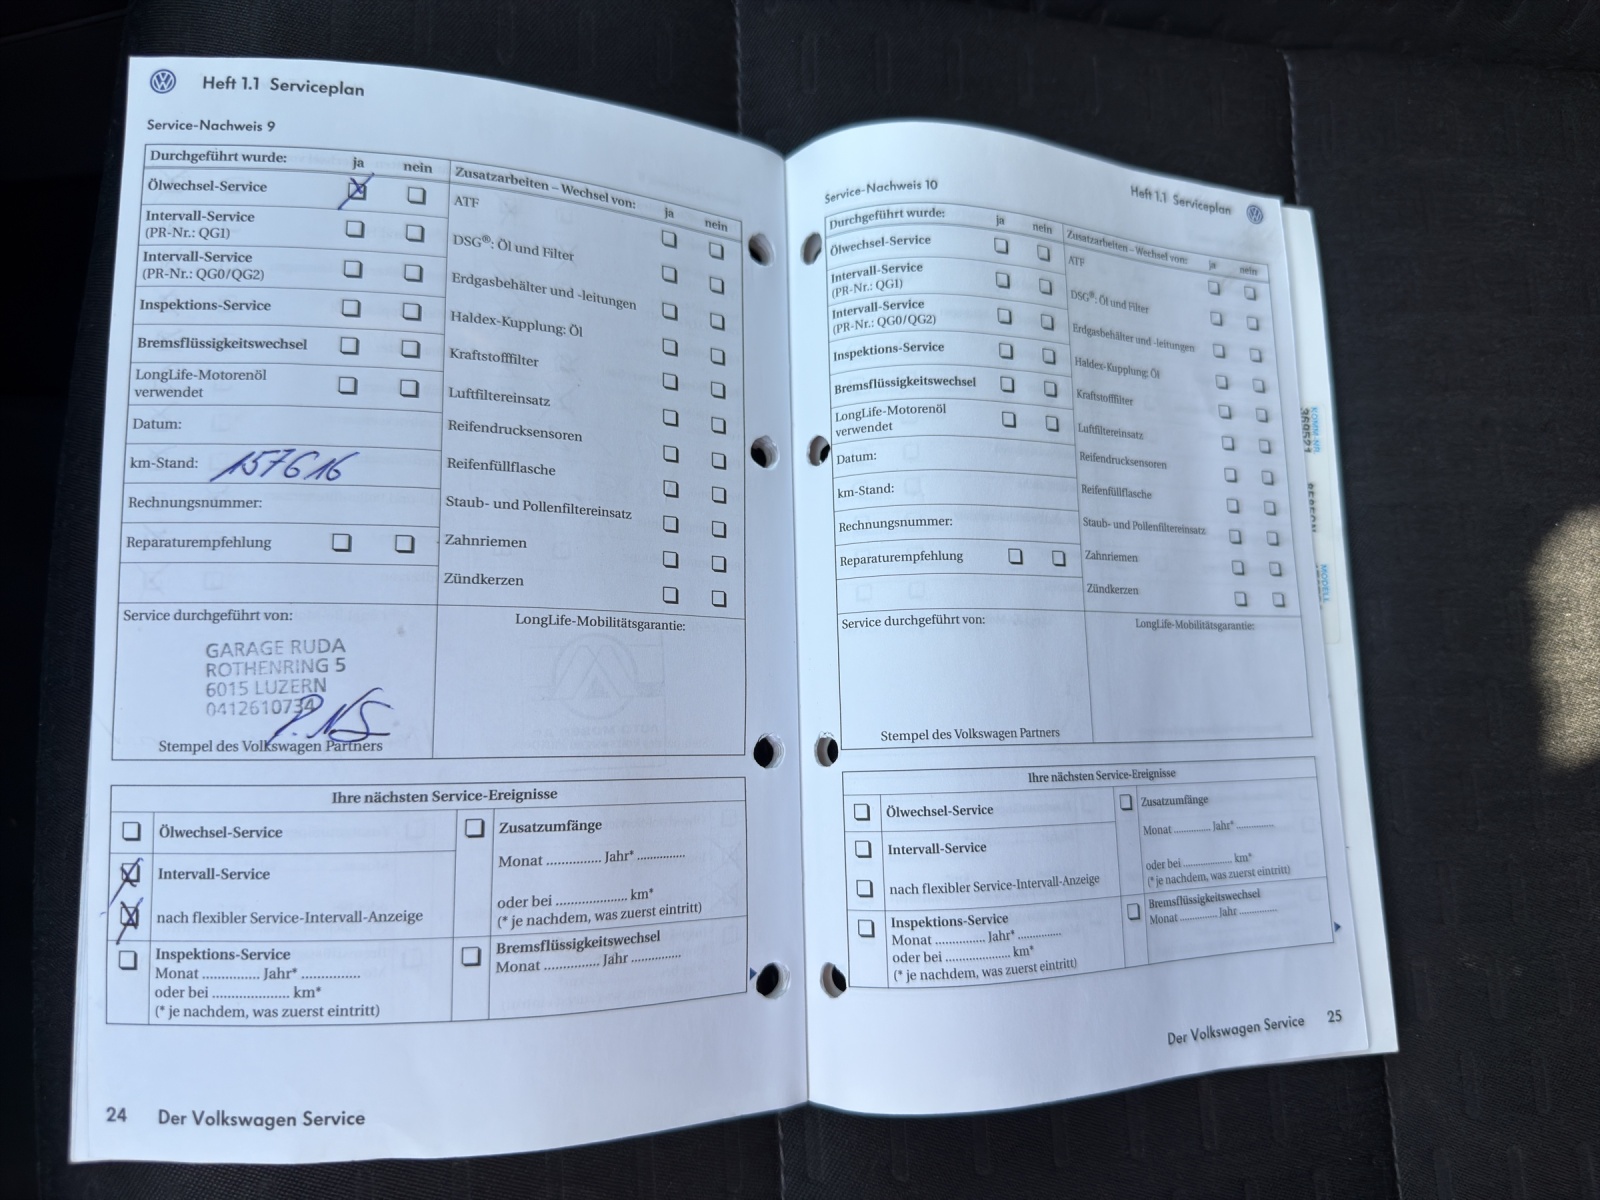 Heft 1.1 Serviceplan
Service-Nachweis 9
Durchgeführt wurde: ja nein
Ölwechsel-Service
Intervall-Service
(PR-Nr.: QG1)
Intervall-Service
(PR-Nr.: QG0/QG2)
Inspektions-Service
Bremsflüssigkeitswechsel
LongLife-Motorenöl
verwendet
Datum:
km-Stand: 157616
Rechnungsnummer:
Reparaturempfehlung
Zusatzarbeiten – Wechsel von: ja nein
ATF
DSG®: Öl und Filter
Erdgasbehälter und -leitungen
Haldex-Kupplung: Öl
Kraftstofffilter
Luftfiltereinsatz
Reifendrucksensoren
Reifenfüllflasche
Staub- und Pollenfiltereinsatz
Zahnriemen
Zündkerzen
Service durchgeführt von:
GARAGE RUDA
ROTHENRING 5
6015 LUZERN
0412610734
Stempel des Volkswagen Partners
LongLife-Mobilitätsgarantie:
Ihre nächsten Service-Ereignisse
Ölwechsel-Service
Intervall-Service
nach flexibler Service-Intervall-Anzeige
Inspektions-Service
Monat .............. Jahr* ..............
oder bei .................... km*
(* je nachdem, was zuerst eintritt)
Zusatzumfänge
Monat .............. Jahr* ..............
oder bei .................... km*
(* je nachdem, was zuerst eintritt)
Bremsflüssigkeitswechsel
Monat .............. Jahr ..............
24 Der Volkswagen Service
Service-Nachweis 10
Heft 1.1 Serviceplan
Durchgeführt wurde: ja nein
Ölwechsel-Service
Intervall-Service
(PR-Nr.: QG1)
Intervall-Service
(PR-Nr.: QG0/QG2)
Inspektions-Service
Bremsflüssigkeitswechsel
LongLife-Motorenöl
verwendet
Datum:
km-Stand:
Rechnungsnummer:
Reparaturempfehlung
Zusatzarbeiten – Wechsel von: ja nein
ATF
DSG®: Öl und Filter
Erdgasbehälter und -leitungen
Haldex-Kupplung: Öl
Kraftstofffilter
Luftfiltereinsatz
Reifendrucksensoren
Reifenfüllflasche
Staub- und Pollenfiltereinsatz
Zahnriemen
Zündkerzen
Service durchgeführt von:
Stempel des Volkswagen Partners
LongLife-Mobilitätsgarantie:
Ihre nächsten Service-Ereignisse
Ölwechsel-Service
Intervall-Service
nach flexibler Service-Intervall-Anzeige
Inspektions-Service
Monat .............. Jahr* ..............
oder bei .................... km*
(* je nachdem, was zuerst eintritt)
Zusatzumfänge
Monat .............. Jahr* ..............
oder bei .................... km*
(* je nachdem, was zuerst eintritt)
Bremsflüssigkeitswechsel
Monat .............. Jahr ..............
Der Volkswagen Service 25
KOMM.NR.
MODELL